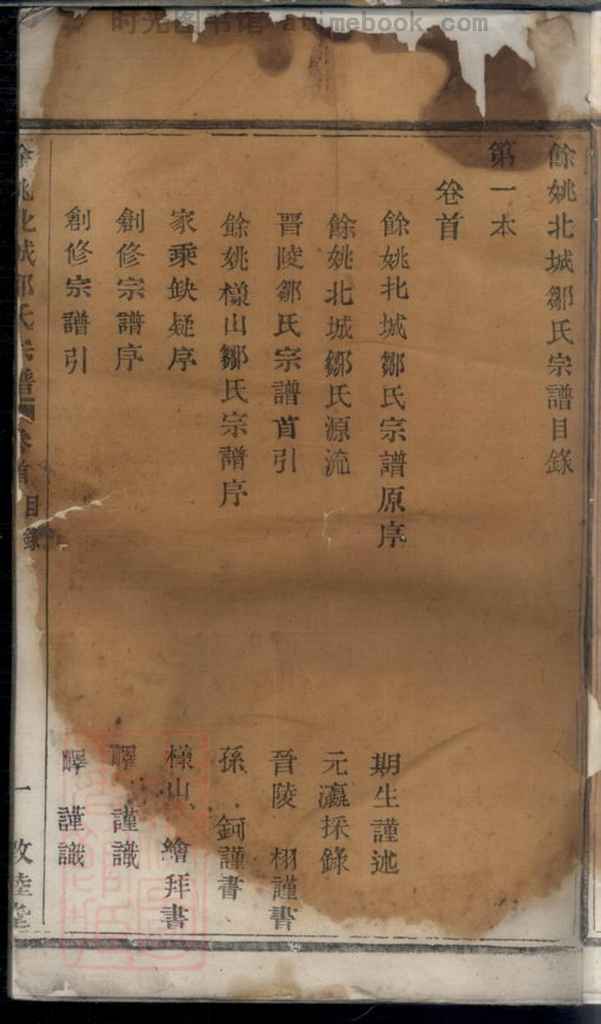 时光图书馆 - atimebook.com
餘姚北城鄒氏宗譜目錄
第一本
卷首
餘姚北城鄒氏宗譜原序 期生謹述
餘姚北城鄒氏源流 元瀛採錄
晋陵鄒氏宗譜首引 晋陵 栩謹書
餘姚樣山鄒氏宗譜序 孫 鈳謹書
家乘缺疑序 樣山 繪拜書
創修宗譜序 謹識
創修宗譜引 謹識
餘姚北城鄒氏宗譜 卷首 目錄 一 敦睦堂